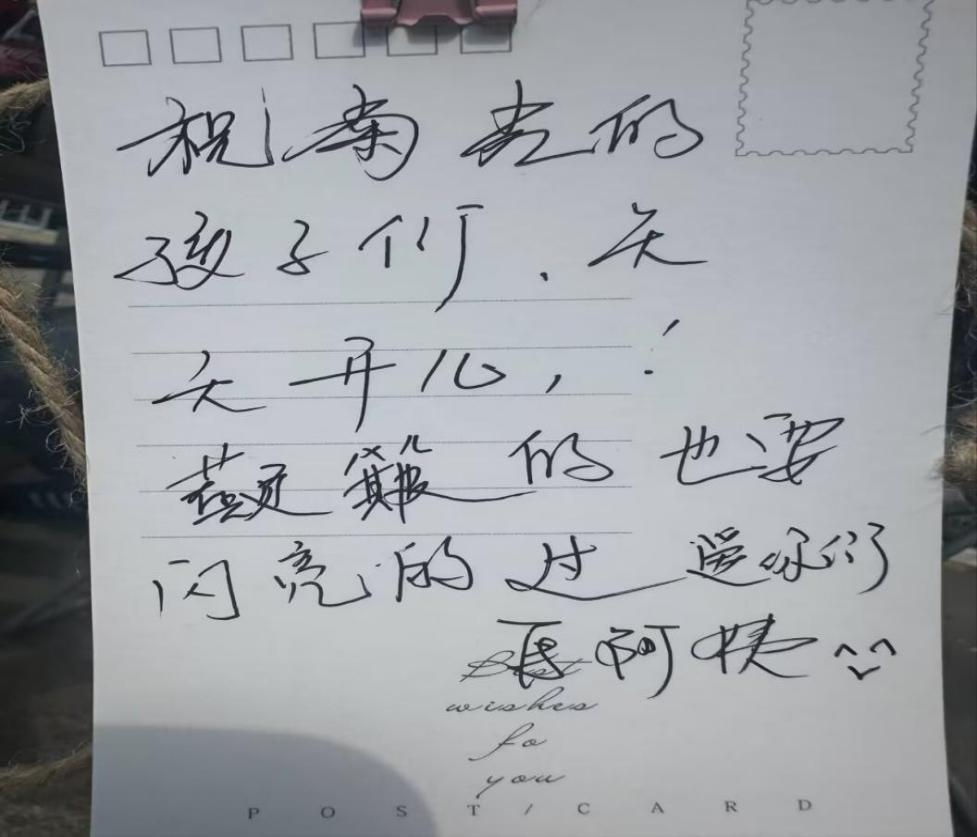 祝南孝的
孩子们、天
天开心，!
的也要
闪亮的过 爱你们
阿捷
Best
wishes
fo
you
POST/CARD